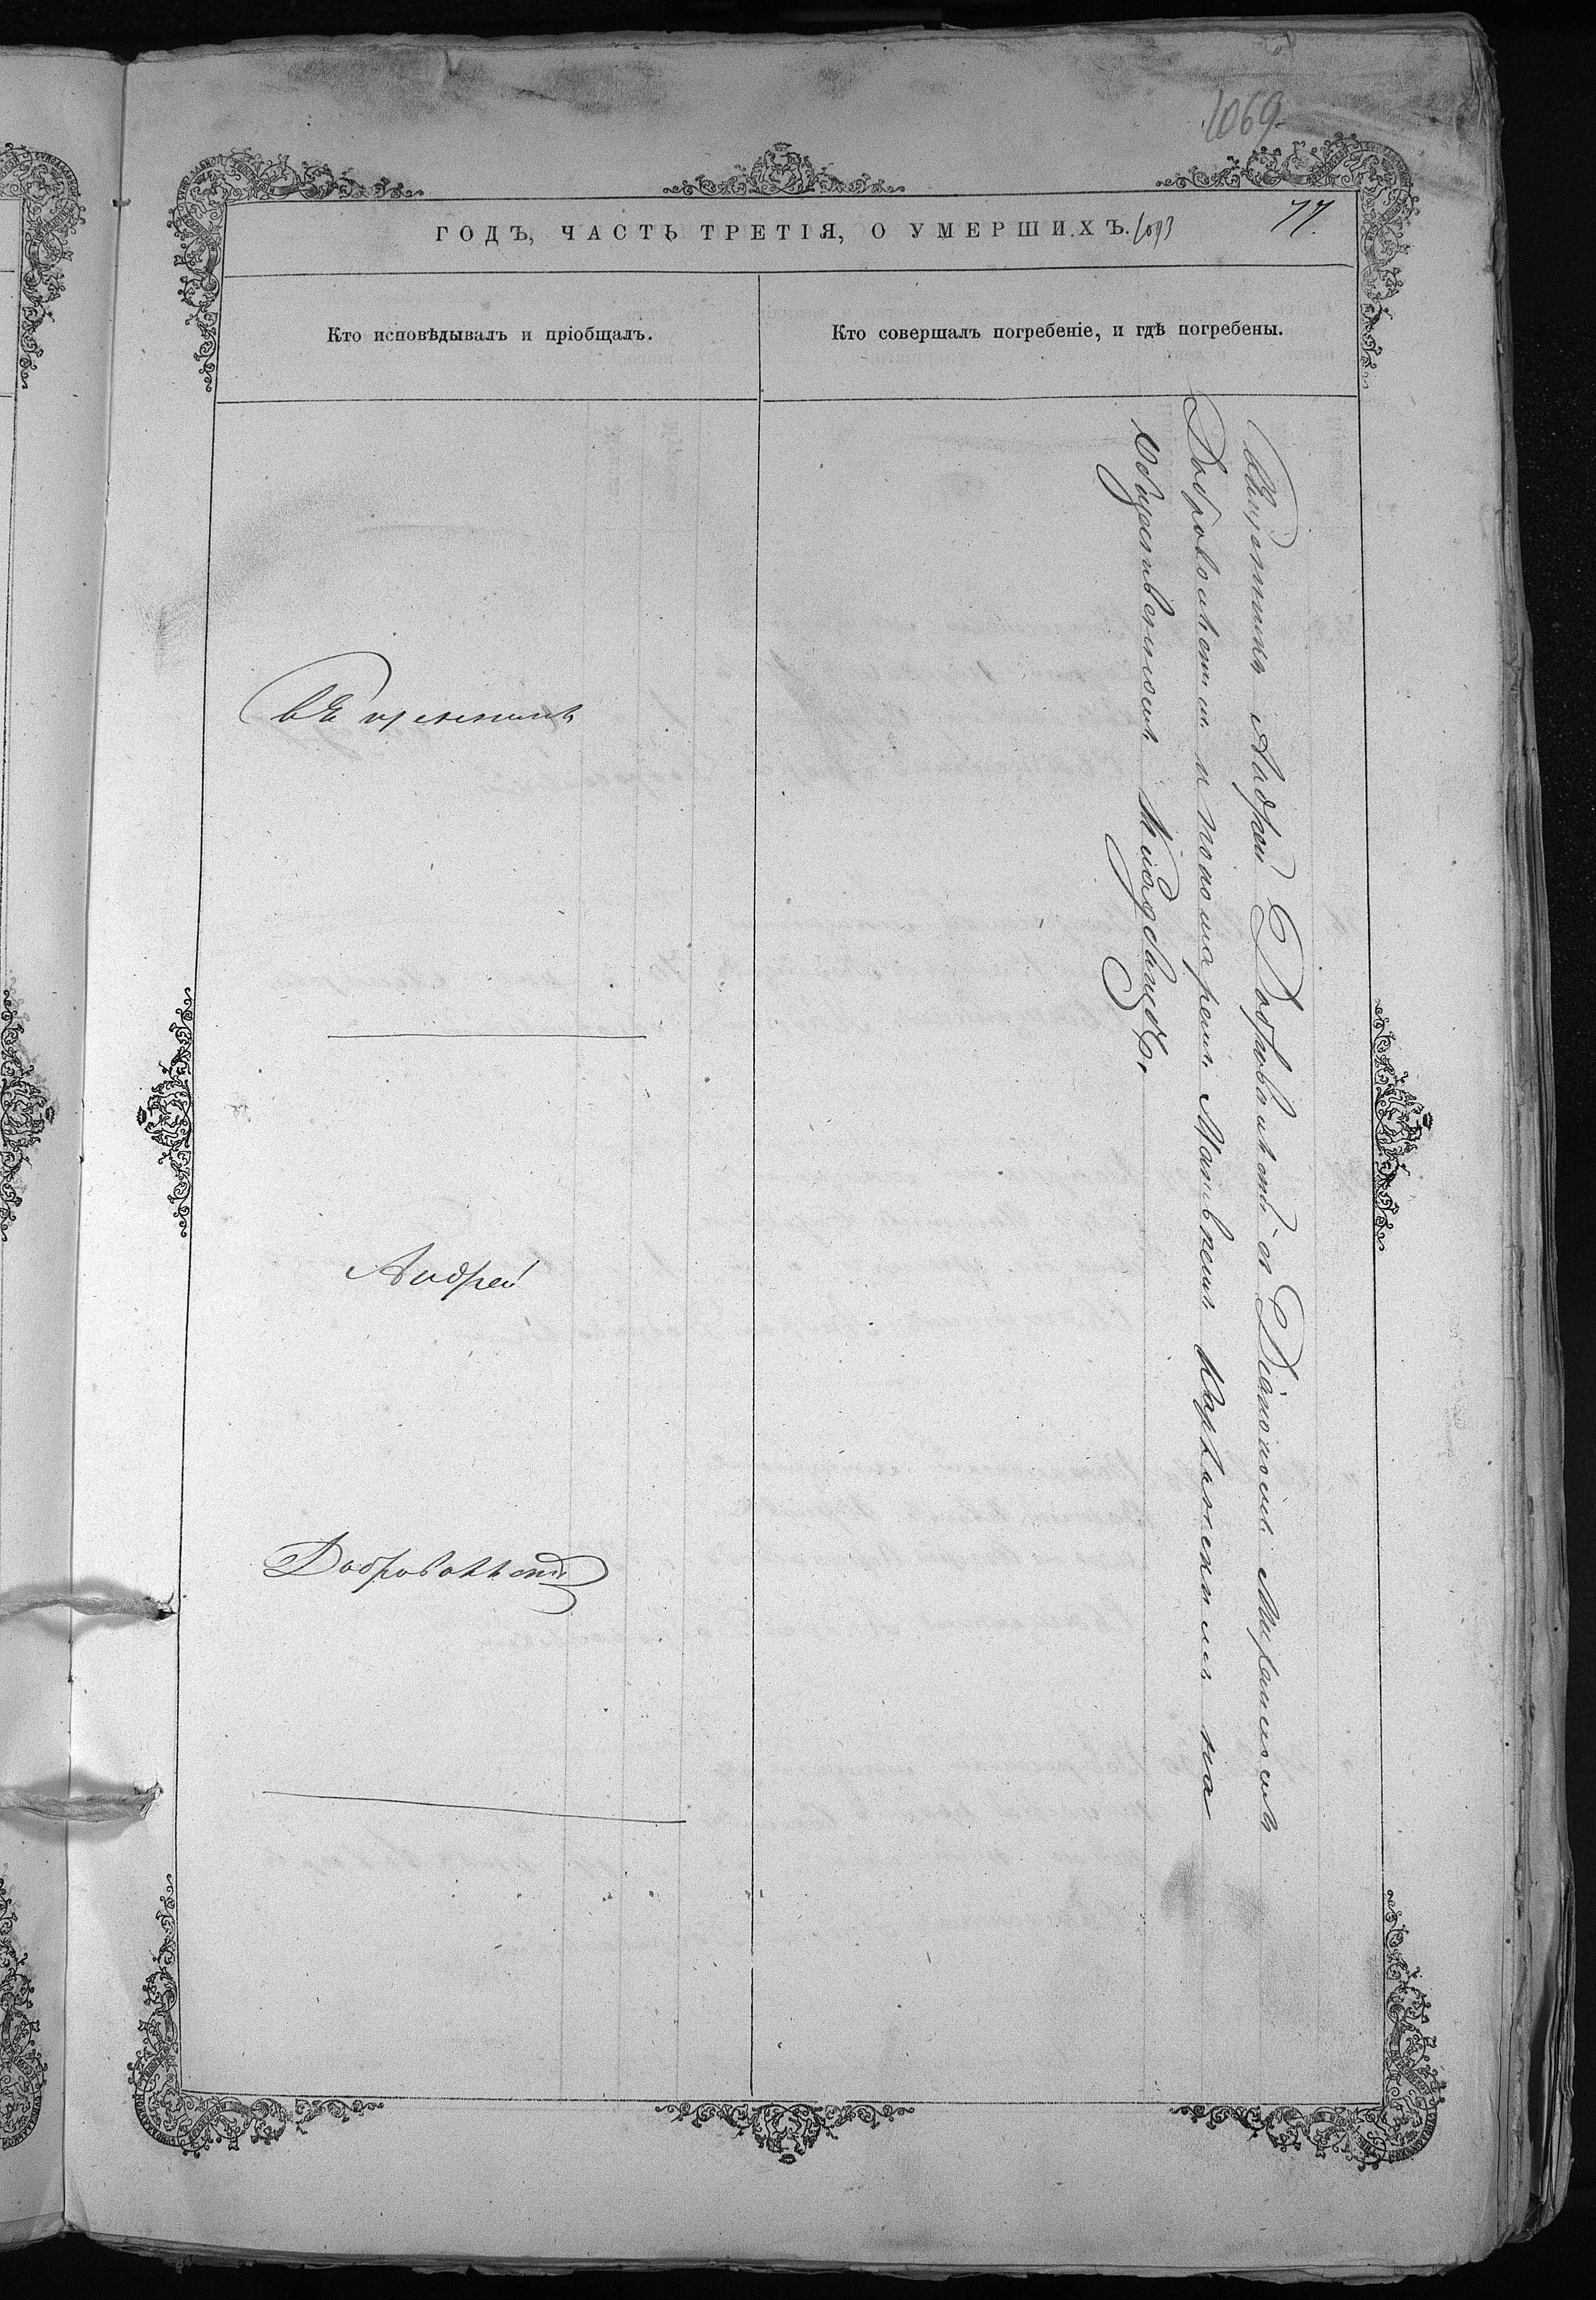 1069.
ГОДЪ, ЧАСТЬ ТРЕТІЯ, О УМЕРШИХЪ.
77.
Кто исповѣдывалъ и пріобщалъ.
Кто совершалъ погребеніе, и гдѣ погребены.
Священникъ
Андрей
Добровольскій
Священникъ Андрей Добровольскій съ Діакономъ Михаиломъ
Добровольскимъ и пономаремъ Матвѣемъ на
Общественномъ Кладбищѣ.